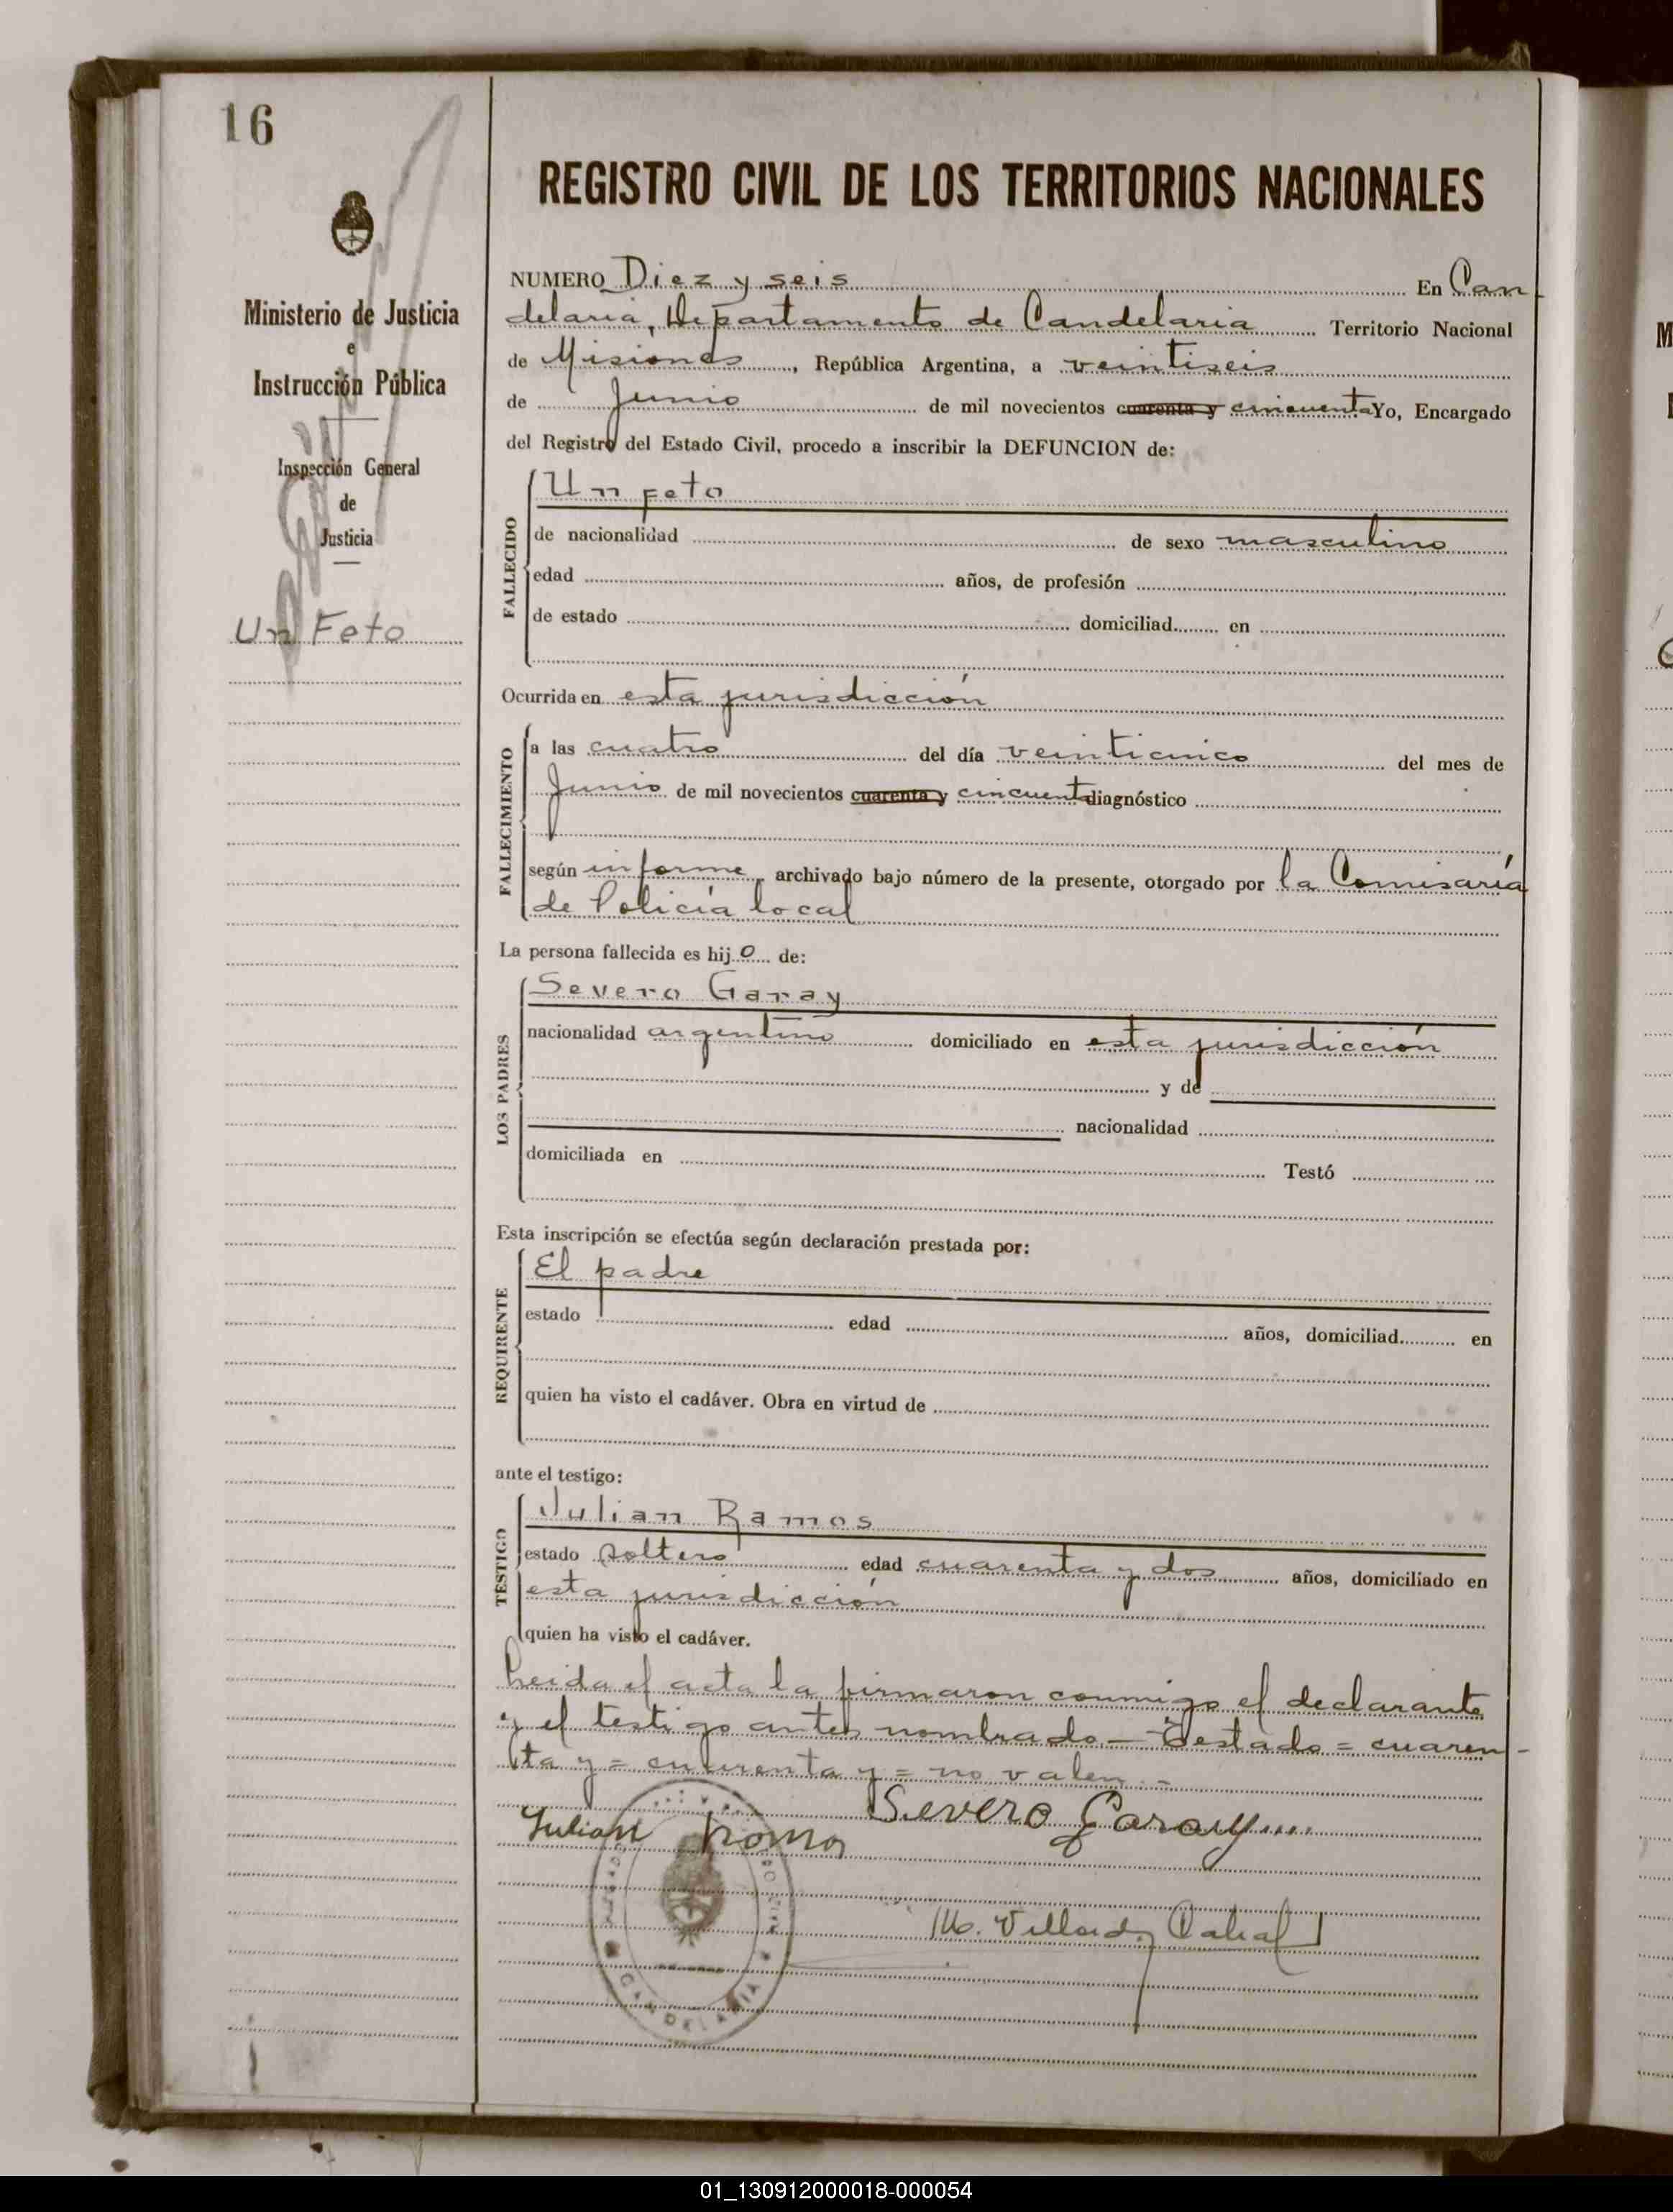 16
Ministerio de Justicia
e
Instrucción Pública
Inspección General
de
Justicia
Un Feto
REGISTRO CIVIL DE LOS TERRITORIOS NACIONALES
NUMERO Diez y seis En Can
delaria, Departamento de Candelaria Territorio Nacional
de Misiones, República Argentina, a veintiseis
de Junio de mil novecientos cuarenta y cincuenta Yo, Encargado
del Registro del Estado Civil, procedo a inscribir la DEFUNCION de:
FALLECIDO
Un feto
de nacionalidad de sexo masculino
edad años, de profesión
de estado domiciliad en
Ocurrida en esta jurisdicción
FALLECIMIENTO
a las cuatro del día veinticinco del mes de
Junio de mil novecientos cuarenta y cincuenta diagnóstico
según informe archivado bajo número de la presente, otorgado por la Comisaría
de Policía local
La persona fallecida es hijo de:
LOS PADRES
Severo Garay
nacionalidad argentino domiciliado en esta jurisdicción
y de
nacionalidad
domiciliada en Testó
Esta inscripción se efectúa según declaración prestada por:
REQUIRENTE
El padre
estado edad años, domiciliad en
quien ha visto el cadáver. Obra en virtud de
ante el testigo:
TESTIGO
Julian Ramos
estado soltero edad cuarenta y dos años, domiciliado en
esta jurisdicción
quien ha visto el cadáver.
Leida el acta la firmaron conmigo el declarante
y el testigo antes nombrado.— Testado = cuaren-
ta y = cuarenta y = no valen.-
Severo Garay
Julian Ramos
M. Cabral
CANDELARIA
01_130912000018-000054